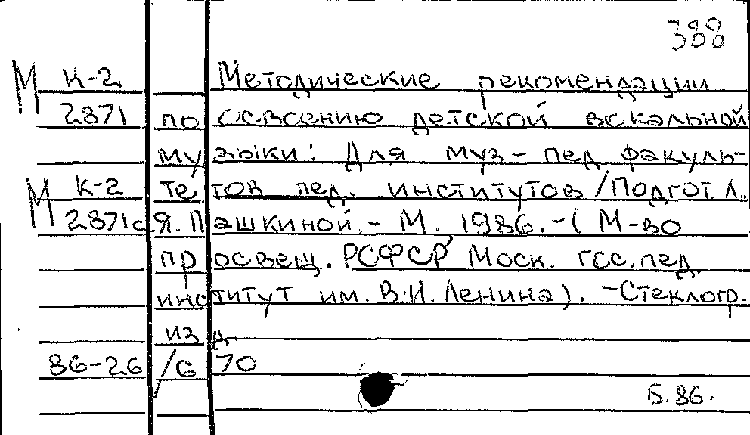 М К-2 Методические рекомендации
2871 по освоению детской вокальной
музыки: Для муз-пед факуль-
М К-2 тетов пед. институтов/Подгот. Л.
2871с Я. Пашкиной. - М. 1986. - (М-во
просвещ. РСФСР Моск. гос. пед.
институт им. В.И. Ленина). - Стеклогр.
изд
86-26/670
Б.86.